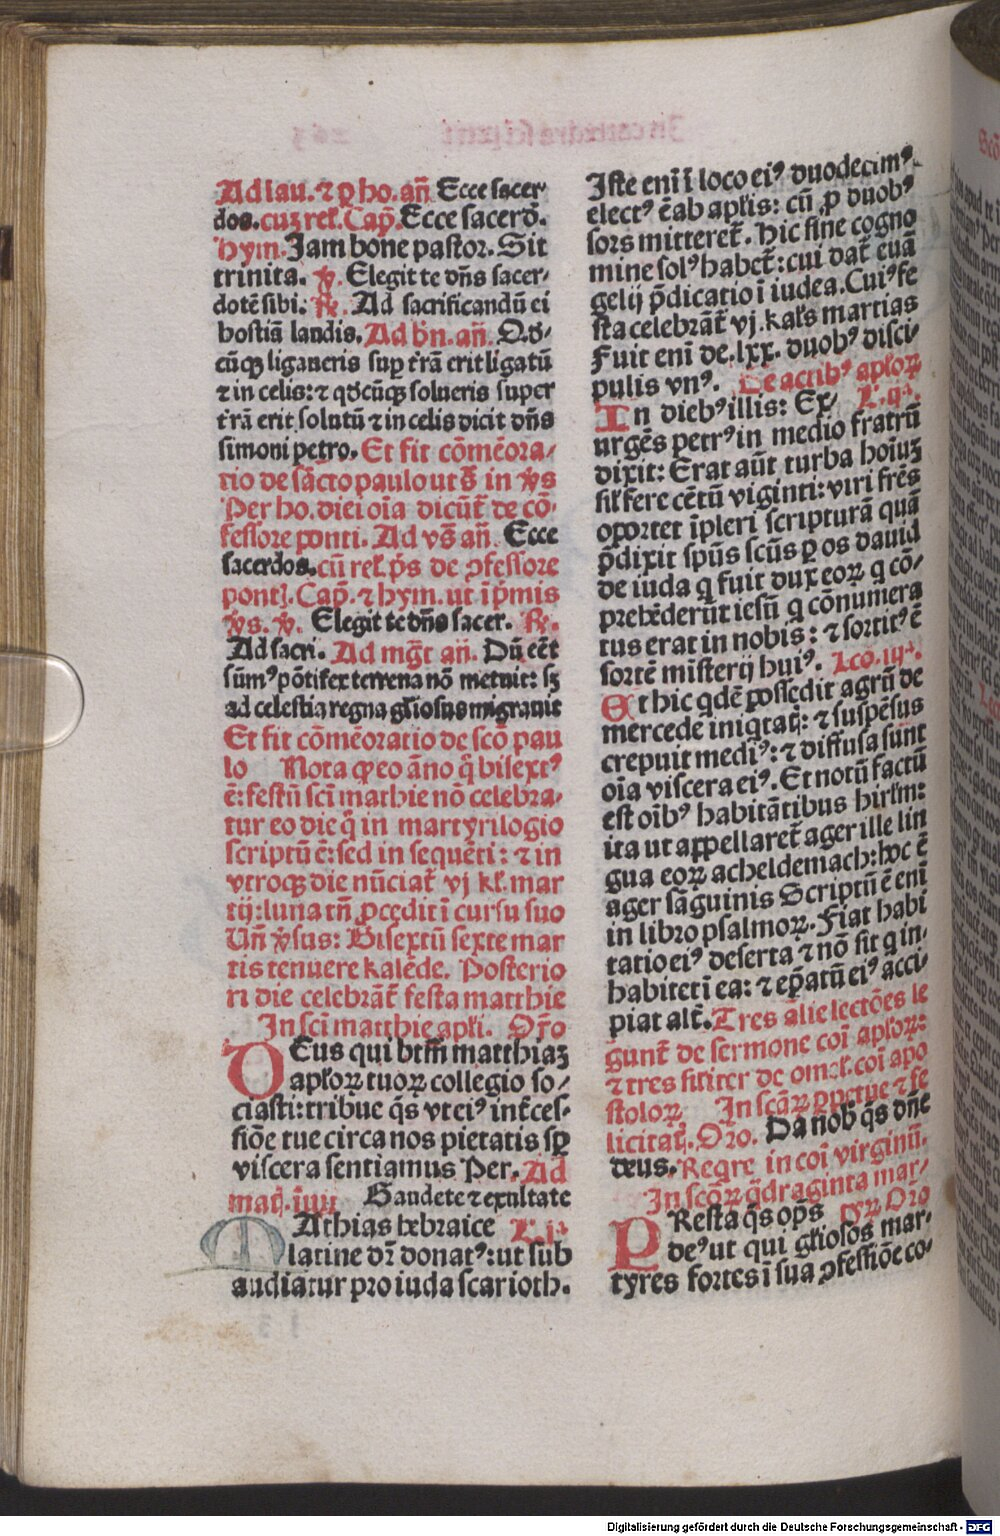 Ad lau. ⁊ ꝑ ho. añ. Ecce sacer-
dos. cuꝫ rel̃. Cap̃. Ecce sacerd̃.
hym. Jam bone pastor. Sit
trinita. ℣. Elegit te dñs sacer-
dotē sibi. ℟. Ad sacrificandū ei
hostiā laudis. Ad bñ. añ. Qd-
cūqꝫ ligaueris suꝑ t̃rā erit ligatū
⁊ in celis: ⁊ qdcūqꝫ solueris super
t̃rā erit solutū ⁊ in celis dicit dñs
simoni petro. Et fit cōmēora-
tio de sācto paulo ut s̃ in ꝟs
Per ho. diei oīa dicūt̃ de cō-
fessore ponti. Ad vs̃ añ. Ecce
sacerdos. cū rel̃. p̃s de ꝯfessore
ponti. Cap̃. ⁊ hym. ut ip̃mis
ꝟs. ℣. Elegit te dñs sacer. ℟.
Ad sacri. Ad mg̃t añ. Dū eēt
sūmꝰ pōtifex terrena nō metuit: sꝫ
ad celestia regna gl̃iosus migrauit
Et fit cōmēoratio de scō pau
lo Nota ꝙ eo āno q̃ bisextꝰ
ē: festū scī mathie nō celebra-
tur eo die q̃ in martyrilogio
scriptū ē: sed in sequēti: ⁊ in
vtroqꝫ die nūciat̃ vj kl̃. mar
tij: luna tñ ꝓcedit ī cursu suo
Uñ ꝟsus: Bisextū sexte mar
tis tenuere kalēde. Posterio
ri die celebrāt̃ festa matthie
In scī matthie apl̃i. Oŕo
DEus qui btm̃ matthiaꝫ
apl̃oꝝ tuoꝝ collegio so-
ciasti: tribue q̃s vt eiꝰ int̃ces-
siōe tue circa nos pietatis sꝑ
viscera sentiamus Per. Ad
Gaudete ⁊ exultate
MAthias hebraice L̃. j.
latine dr̃ donatꝰ: ut sub
audiatur pro iuda scarioth.
Iste enī ī loco eiꝰ duodecimꝰ
electꝰ ē ab apl̃is: cū ꝓ duobꝰ
sors mitteret̃. Hic sine cogno
mine solꝰ habet̃: cui dat̃ euā
gelij p̃dicatio ī iudea. Cuiꝰ fe
sta celebrāt̃ vj. kal̃s martias
Fuit enī de. lxx. duobꝰ disci-
pulis vnꝰ. De actibꝰ apl̃oꝝ
In diebꝰ illis: Ex- L̃. ij.
urgēs petrꝰ in medio fratrū
dixit: Erat aūt turba hoīuꝫ
sil̃ fere cētū viginti: viri frēs
oportet īpleri scripturā quā
p̃dixit spūs scūs ꝑ os dauid
de iuda q̃ fuit dux eoꝝ q̃ cō-
prehēderūt iesū q̃ cōnumera
tus erat in nobis: ⁊ sortitꝰ ē
sortē mīsterij huiꝰ. Lco. iij.
Et hic qdē possedit agrū de
mercede iniqtat̃: ⁊ suspēsus
crepuit mediꝰ: ⁊ diffusa sunt
oīa viscera eiꝰ. Et notū factū
est oībꝰ habitātibus hirl̃m:
ita ut appellaret̃ ager ille lin
gua eoꝝ acheldemach: hoc ē
ager sāguinis Scriptū ē enī
in libro psalmoꝝ. Fiat habi
tatio eiꝰ deserta ⁊ nō sit q in-
habitet ī ea: ⁊ ep̃atū eiꝰ acci-
piat alt̃. Tres āl̃ie lectōes le
gunt̃ de sermone coī apl̃oꝝ:
⁊ tres sil̃iter de omel̃. coī apo
stoloꝝ In scāꝝ ꝑpetue ⁊ fe
licitat̃. Oŕo. Da nob̃ q̃s dn̄e
deus. Reqre in coī virginū.
In scōꝝ q̃draginta mar-
PResta q̃s op̃s tyꝝ Oŕo
deꝰ ut qui gl̃iosos mar-
tyres fortes ī sua ꝯfessiōe co-
Digitalisierung gefördert durch die Deutsche Forschungsgemeinschaft - DFG